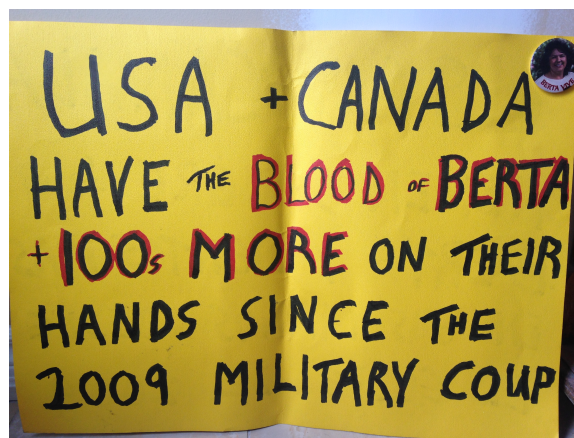 USA + CANADA
HAVE THE BLOOD OF BERTA
+ 100s MORE ON THEIR
HANDS SINCE THE
2009 MILITARY COUP
BERTA VIVE